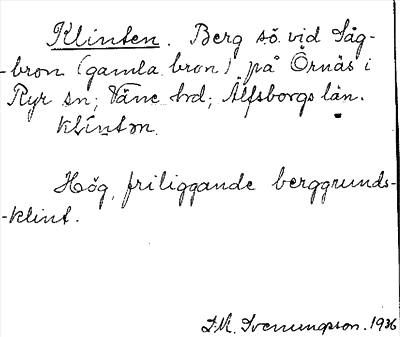 Klinten. Berg sö. vid Såg-
-bron (gamla bron) på Örnäs i
Ryr sn; Väne hd; Älfsborgs län.
klíntən.
Hög, friliggande berggrunds-
-klint.
Svenungsson. 1936